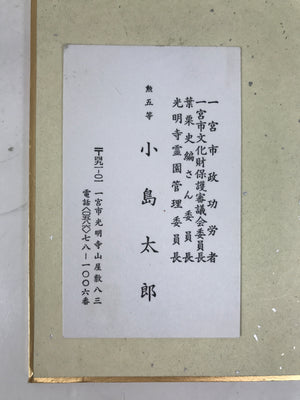 一宮市政功労者
一宮市文化財保護審議会委員長
葉栗史編さん委員長
光明寺霊園管理委員長
勲五等
小島太郎
一宮市光明寺山屋敷八三
電話 七八ー一〇〇六番